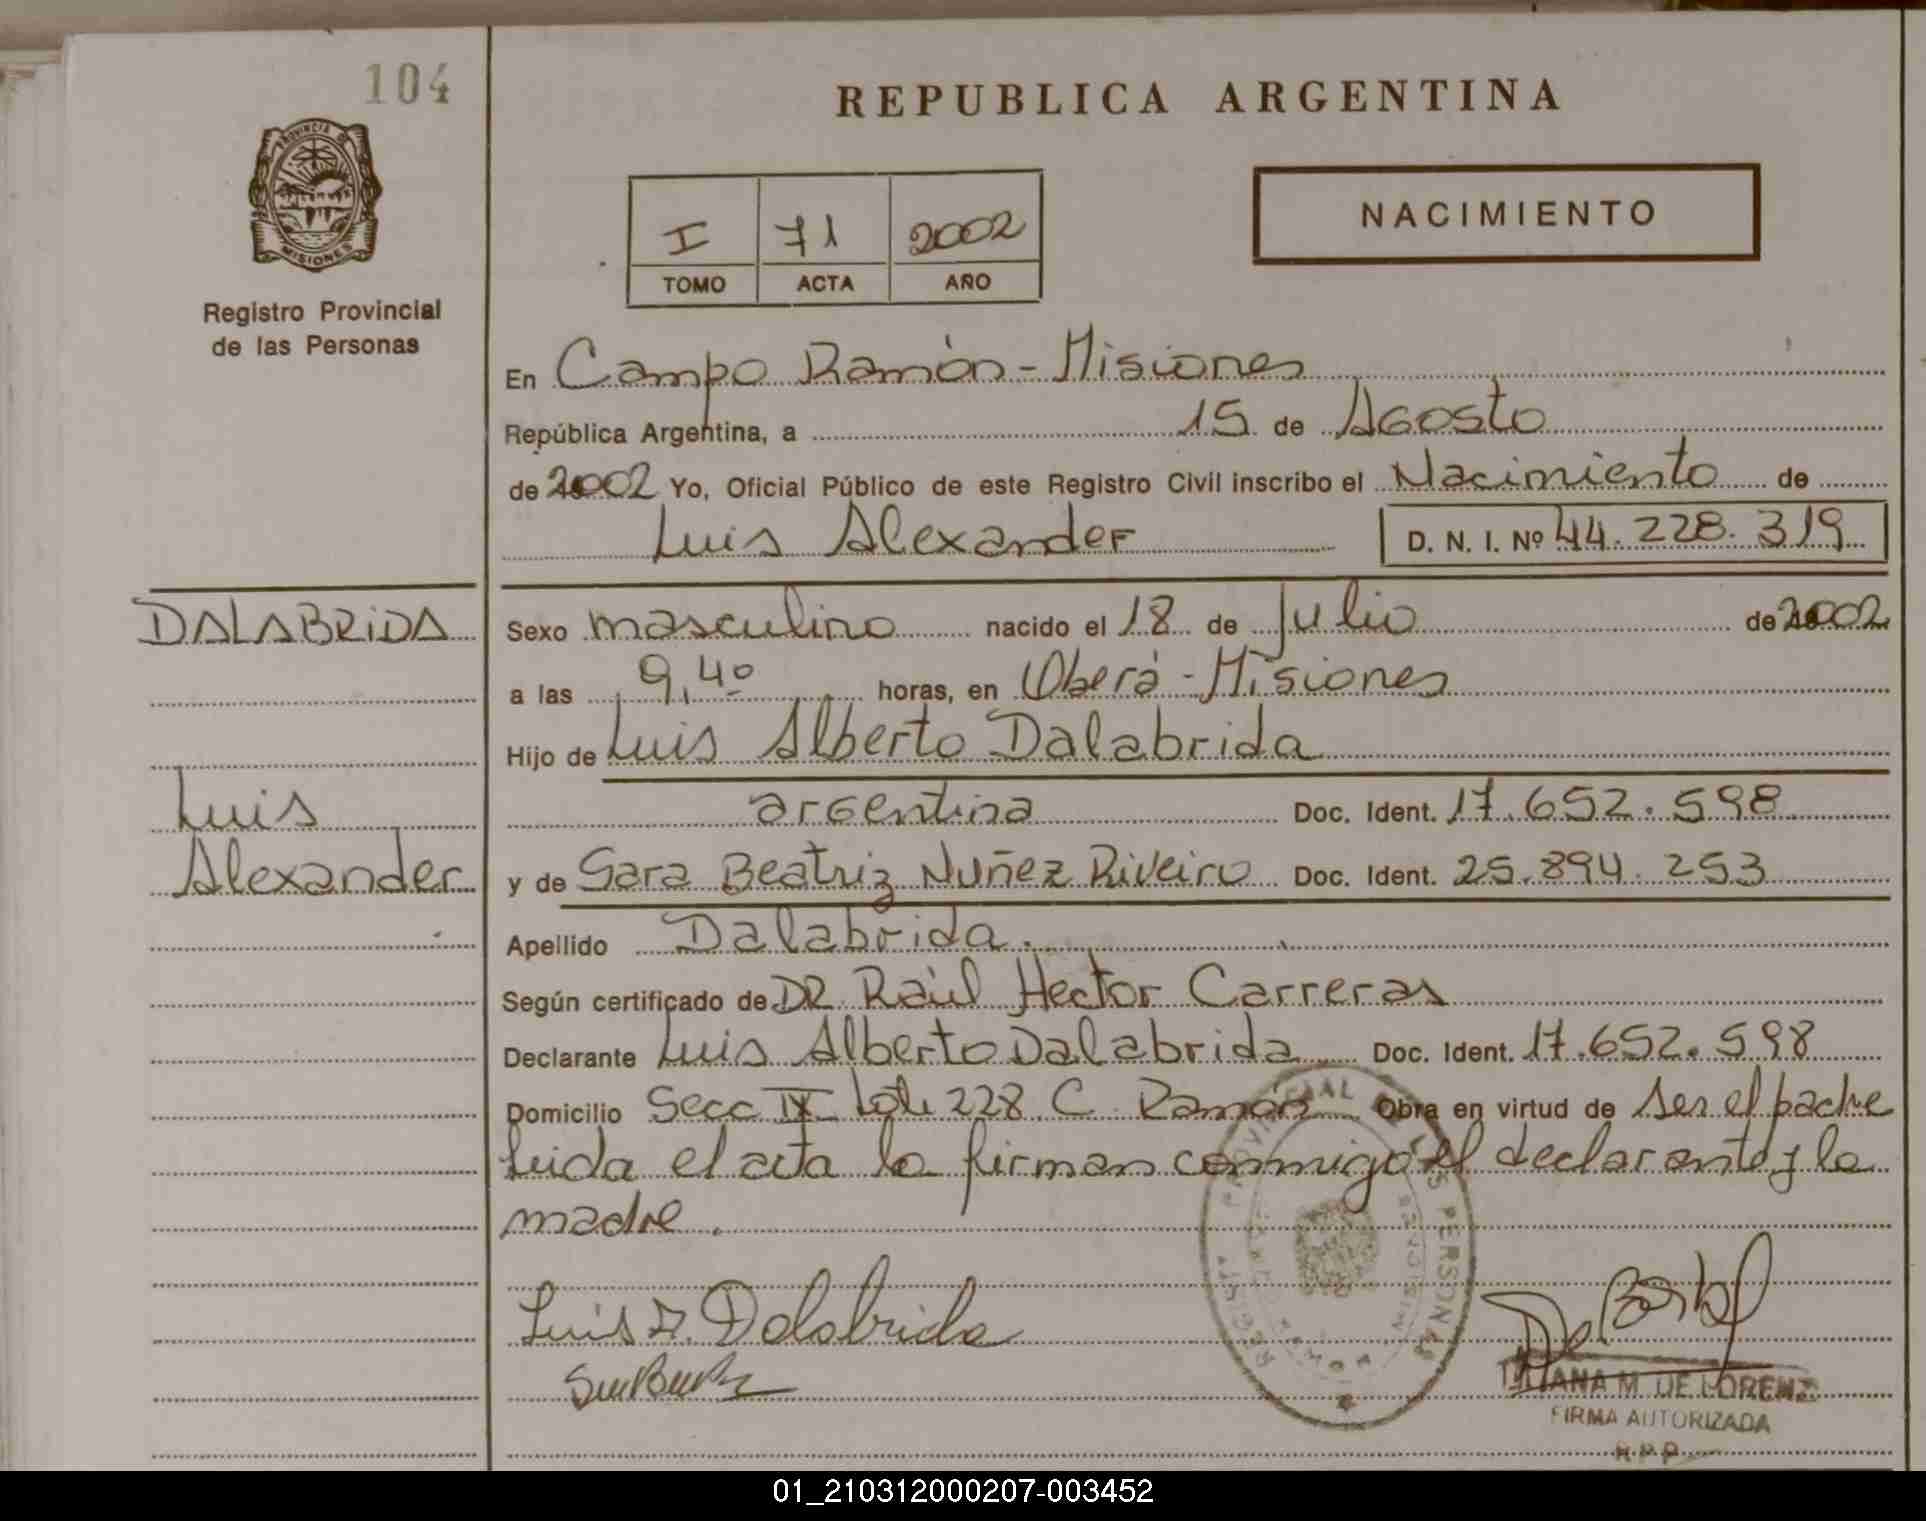 104
REPUBLICA ARGENTINA
PROVINCIA DE
MISIONES
Registro Provincial
de las Personas
I 71 2002
TOMO ACTA AÑO
NACIMIENTO
En Campo Ramón - Misiones
República Argentina, a 15 de Agosto
de 2002 Yo, Oficial Público de este Registro Civil inscribo el Nacimiento de
Luis Alexander D. N. I. Nº 44.228.319
DALABRIDA
Luis
Alexander
Sexo masculino nacido el 18 de Julio de 2002
a las 9,40 horas, en Oberá - Misiones
Hijo de Luis Alberto Dalabrida
argentina Doc. Ident. 17.652.598
y de Sara Beatriz Nuñez Riveiro Doc. Ident. 25.894.253
Apellido Dalabrida.
Según certificado de DR Raúl Hector Carreras
Declarante Luis Alberto Dalabrida Doc. Ident. 17.652.598
Domicilio Secc IX Lote 228 C. Ramón Obra en virtud de ser el padre
Leida el acta la firman conmigo el declarante y la
madre.
Luis A. Dalabrida
PROVINCIAL DE LAS PERSONAS
MISIONES
DE LORENZ
FIRMA AUTORIZADA
R.P.P.
01_210312000207-003452